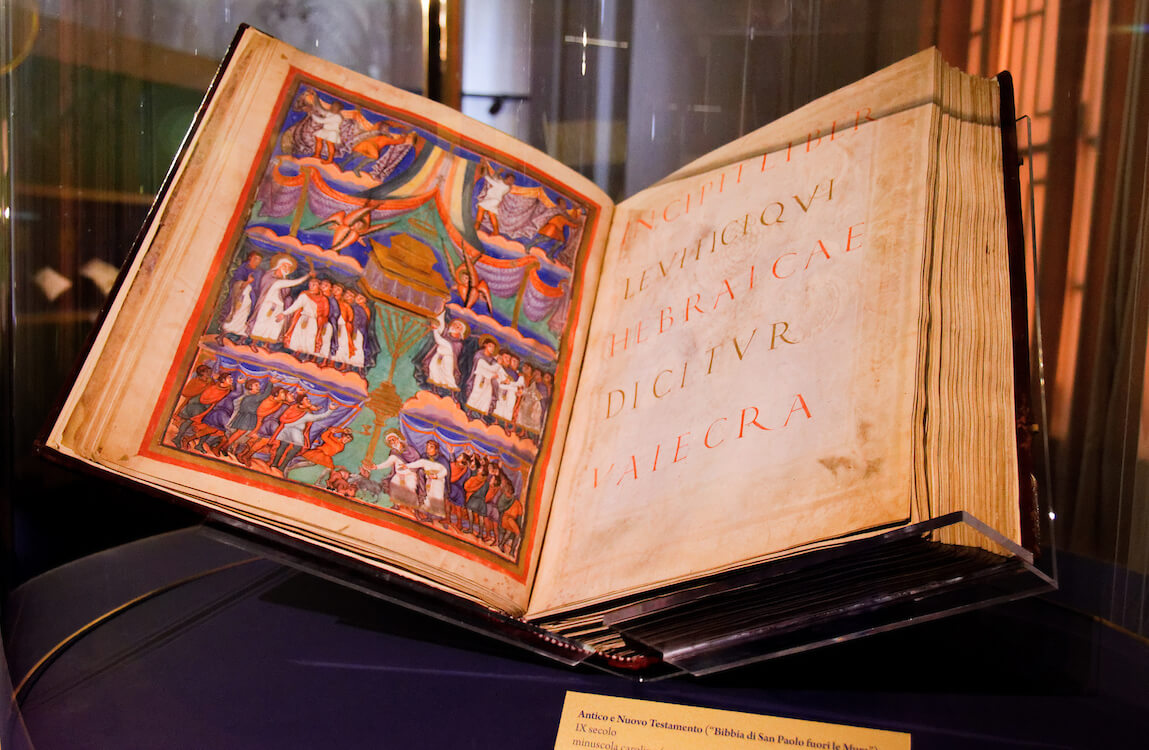 INCIPIT LIBER
LEVITICI QVI
HEBRAICAE
DICITVR
VAIECRA
Antico e Nuovo Testamento ("Bibbia di San Paolo fuori le Mura")
IX secolo
minuscola